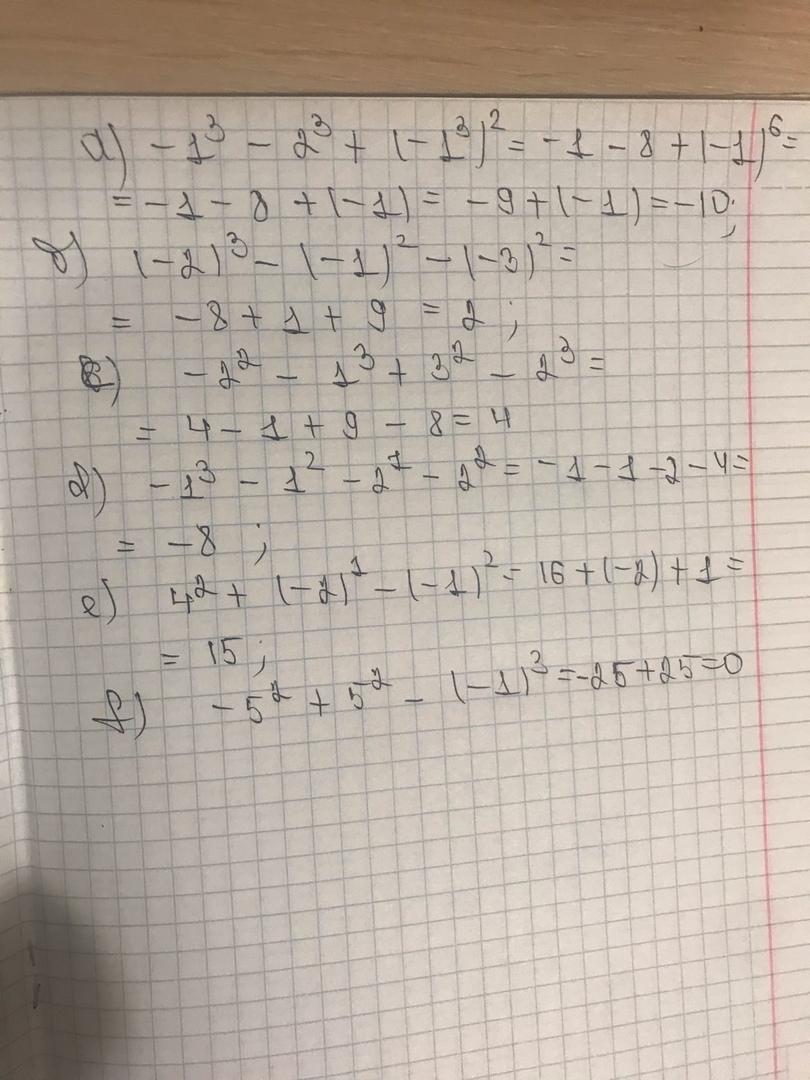 а) -1³ - 2³ + (-1³)² = -1 - 8 + (-1)⁶ =
= -1 - 8 + (-1) = -9 + (-1) = -10;
б) (-2)³ - (-1)² - (-3)² =
= -8 + 1 + 9 = 2 ;
c) -2² - 1³ + 3² - 2³ =
= 4 - 1 + 9 - 8 = 4
d) -1³ - 1² - 2¹ - 2² = -1 - 1 - 2 - 4 =
= -8 ;
e) 4² + (-2)¹ - (-1)² = 16 + (-2) + 1 =
= 15 ;
f) -5² + 5² - (-1)³ = -25 + 25 = 0